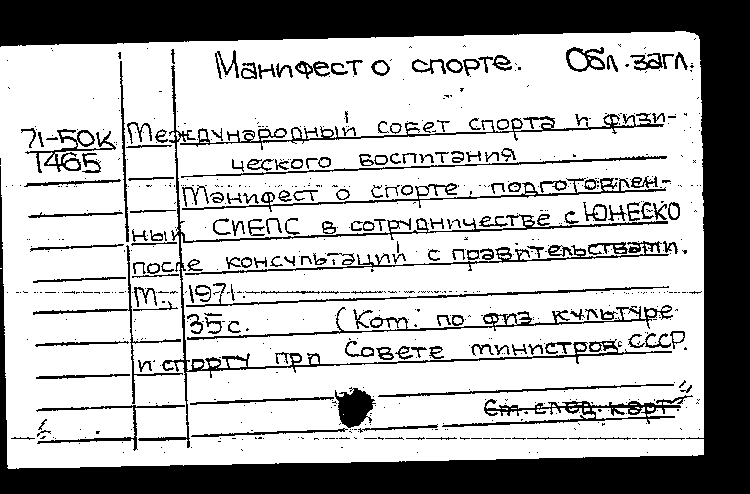 Манифест о спорте. Обл. загл.
71-50К
1465
Международный совет спорта и физи-
ческого воспитания
Манифест о спорте, подготовлен-
ный СИЕПС в сотрудничестве с ЮНЕСКО
после консультаций с правительствами.
М., 1971.
35 с. (Ком. по физ культуре
и спорту при Совете министров СССР.
См. след. карт.